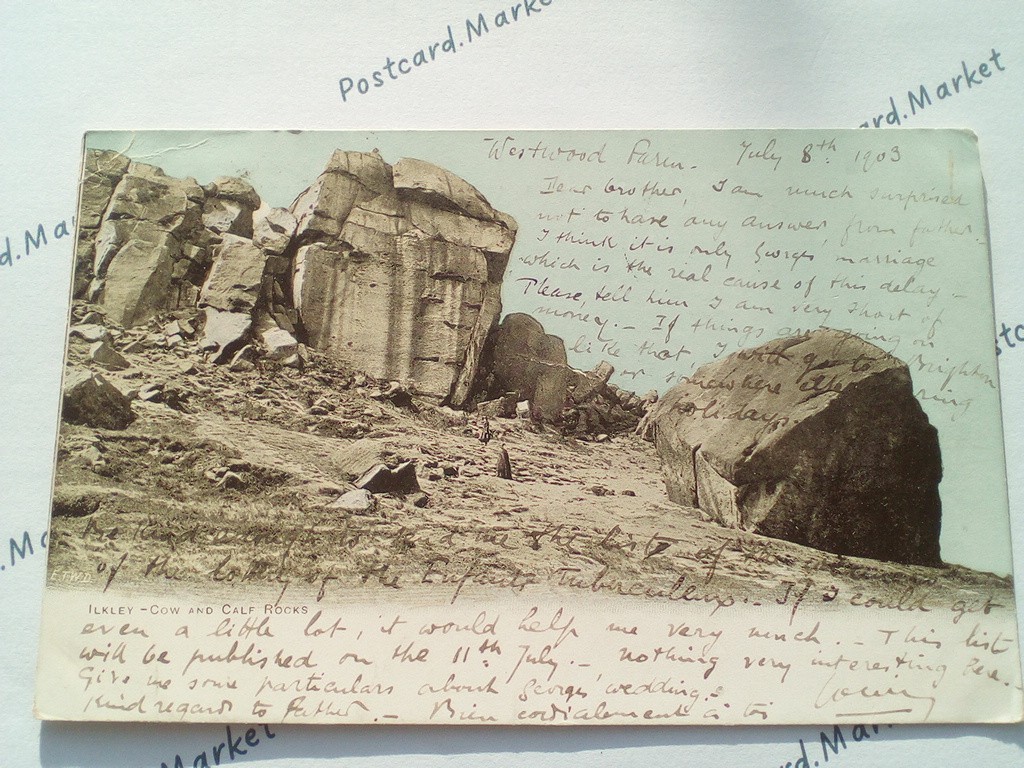 Postcard.Market
rd.Market
Westwood Farm. July 8th 1903
Dear brother, I am much surprised
not to have any answer from father.
I think it is only Georges marriage
which is the real cause of this delay –
Please, tell him I am very short of
money. – If things are going on
like that I will go to Brighton
or somewhere else during
holidays.
the list of the
of the lottery of the Enfants Tuberculeux. – If I could get
E.T.W.D.
ILKLEY – COW AND CALF ROCKS
even a little lot, it would help me very much. – This list
will be published on the 11th July. – nothing very interesting here.
Give me some particulars about Georges' wedding. –
Kind regards to father. – Bien cordialement à toi
Market